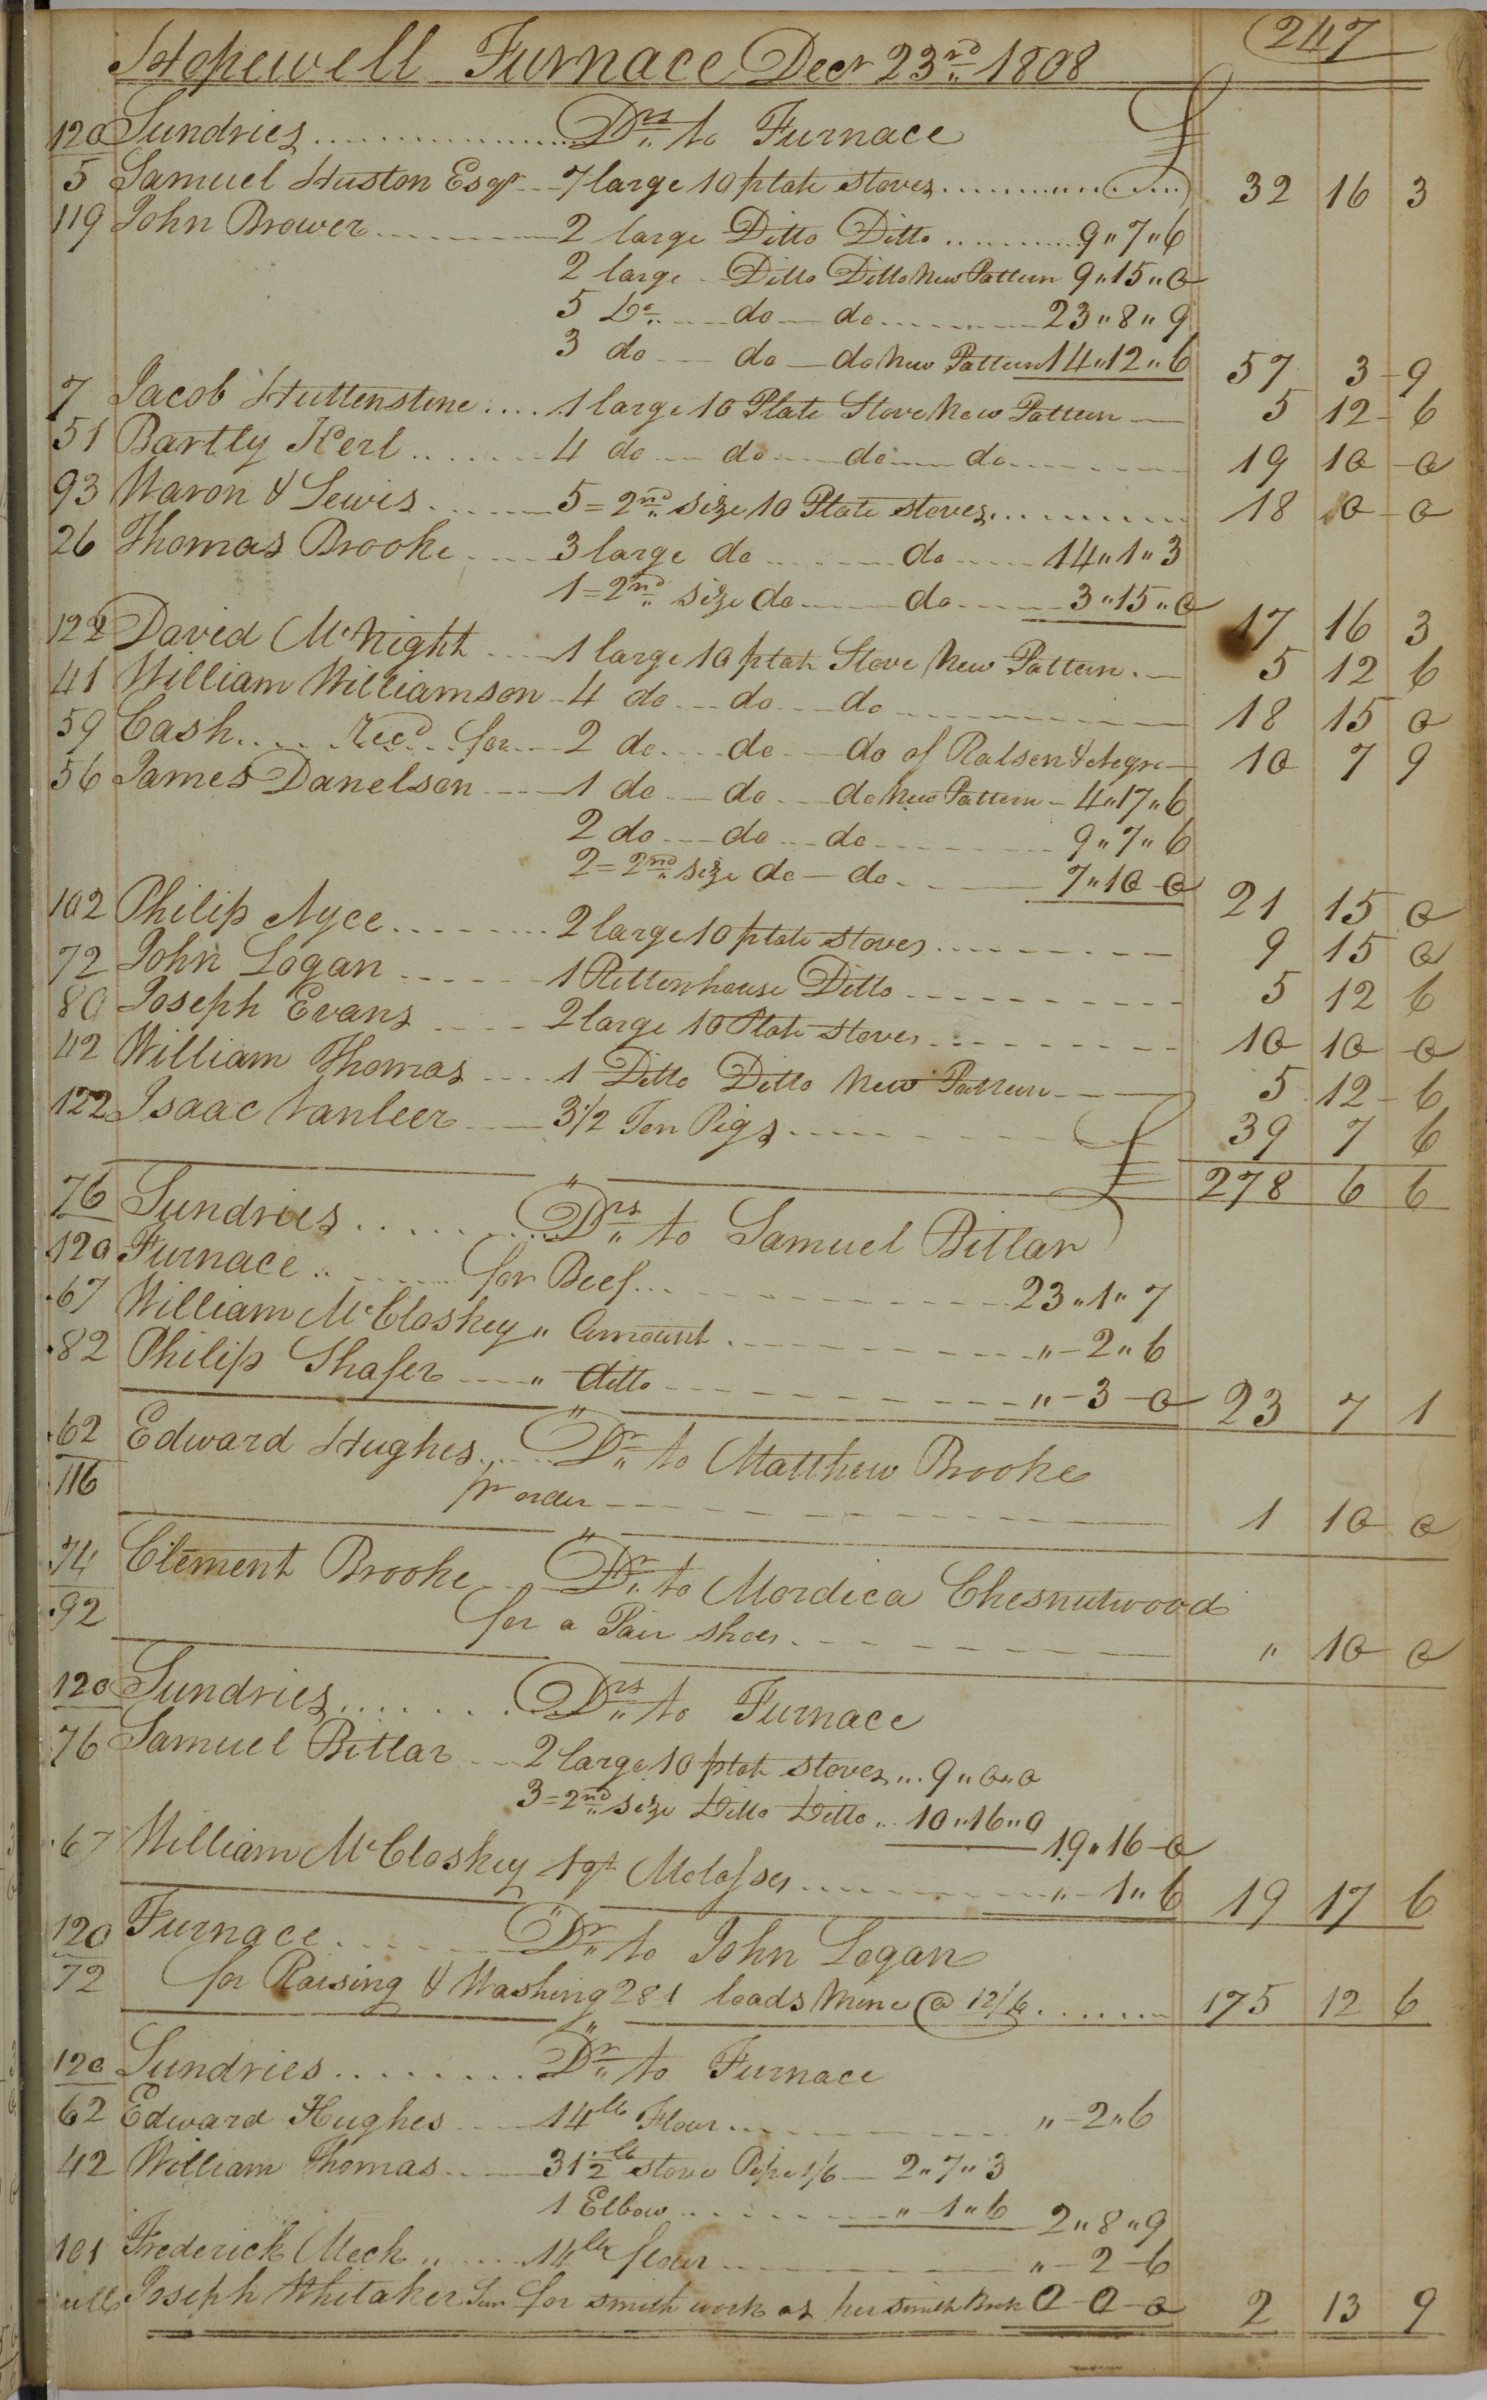 247
Hopewell Furnace Decr 23rd 1808
120 Sundries Drs to Furnace £
5 Samuel Huston Esqr 7 large 10 plate stoves 32 16 3
119 John Brower 2 large Ditto Ditto 9"7"6
2 large Ditto Ditto New Pattern 9"15"0
5 Do do do 23"8"9
3 do do do New Pattern 14"12"6 57 3 9
7 Jacob Huttenstine 1 large 10 Plate Stove New Pattern 5 12 6
51 Bartly Kerl 4 do do do do 19 10 0
93 Waron & Lewis 5=2nd size 10 Plate stoves 18 0 0
26 Thomas Brooke 3 large do do 14"1"3
1=2nd size do do 3"15"0 17 16 3
122 David McNight 1 large 10 plate Stove New Pattern 5 12 6
41 William Williamson 4 do do do 18 15 0
59 Cash Recd for 2 do do do of Ralsen & 10 7 9
56 James Danelson 1 do do do New Pattern 4"17"6
2 do do do 9"7"6
2=2nd size do do 7"10-0 21 15 0
102 Philip Nyce 2 large 10 plate stoves 9 15 0
72 John Logan 1 Rittenhouse Ditto 5 12 6
80 Joseph Evans 2 large 10 Plate stoves 10 10 0
42 William Thomas 1 Ditto Ditto New Pattern 5 12 6
122 Isaac Vanleer 3 1/2 Ton Pigs 39 7 6
£ 278 6 6
76 Sundries Drs to Samuel Bitlar
120 Furnace for Beef 23"1"7
67 William McCloskey " Amount "-2"6
82 Philip Shafer " ditto "-3-0 23 7 1
62 Edward Hughes Dr to Matthew Brooke
116 pr order 1 10 0
74 Clement Brooke Dr to Mordica Chesnutwood
92 for a Pair shoes " 10 0
120 Sundries Drs to Furnace
76 Samuel Bitlar 2 large 10 plate stoves 9"0"0
3=2nd size Ditto Ditto 10"16"0 19"16-0
67 William McCloskey 1 qt Molasses "-1"6 19 17 6
120 Furnace Dr to John Logan
72 for Raising & Washing 281 loads Mine @ 12/6 175 12 6
120 Sundries Dr to Furnace
62 Edward Hughes 14lb Flour "-2"6
42 William Thomas 31 1/2 lb stove Pipe 1/6 2"7"3
1 Elbow "-1"6 2"8"9
101 Frederick Meck 14lb flour "-2-6
Joseph Whitaker Sen for smith work as per smith Book 0-0-0 2 13 9